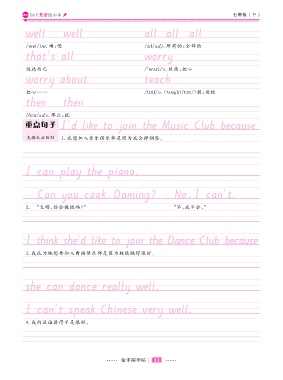 七年级(下)
well well all all all
/wel/int. 嗯;喂 /ɔːl/adj. 所有的;全部的
that's all worry
仅此而已 /ˈwʌri/v. 担忧;担心
worry about teach
担心…… /tiːtʃ/v. (taught/tɔːt/)教;讲授
then then
/ðen/adv. 那么;就
重点句子 I'd like to join the Music Club because
1. 我想加入音乐俱乐部是因为我会弹钢琴。
I can play the piano.
– Can you cook. Daming? – No. I can't.
2. “大明,你会做饭吗?” “不,我不会。”
I think she'd like to join the Dance Club because
3. 我认为她想参加入舞蹈俱乐部是因为她跳舞跳得很好。
she can dance really well.
I can't speak Chinese very well.
4. 我的汉语讲得不是很好。